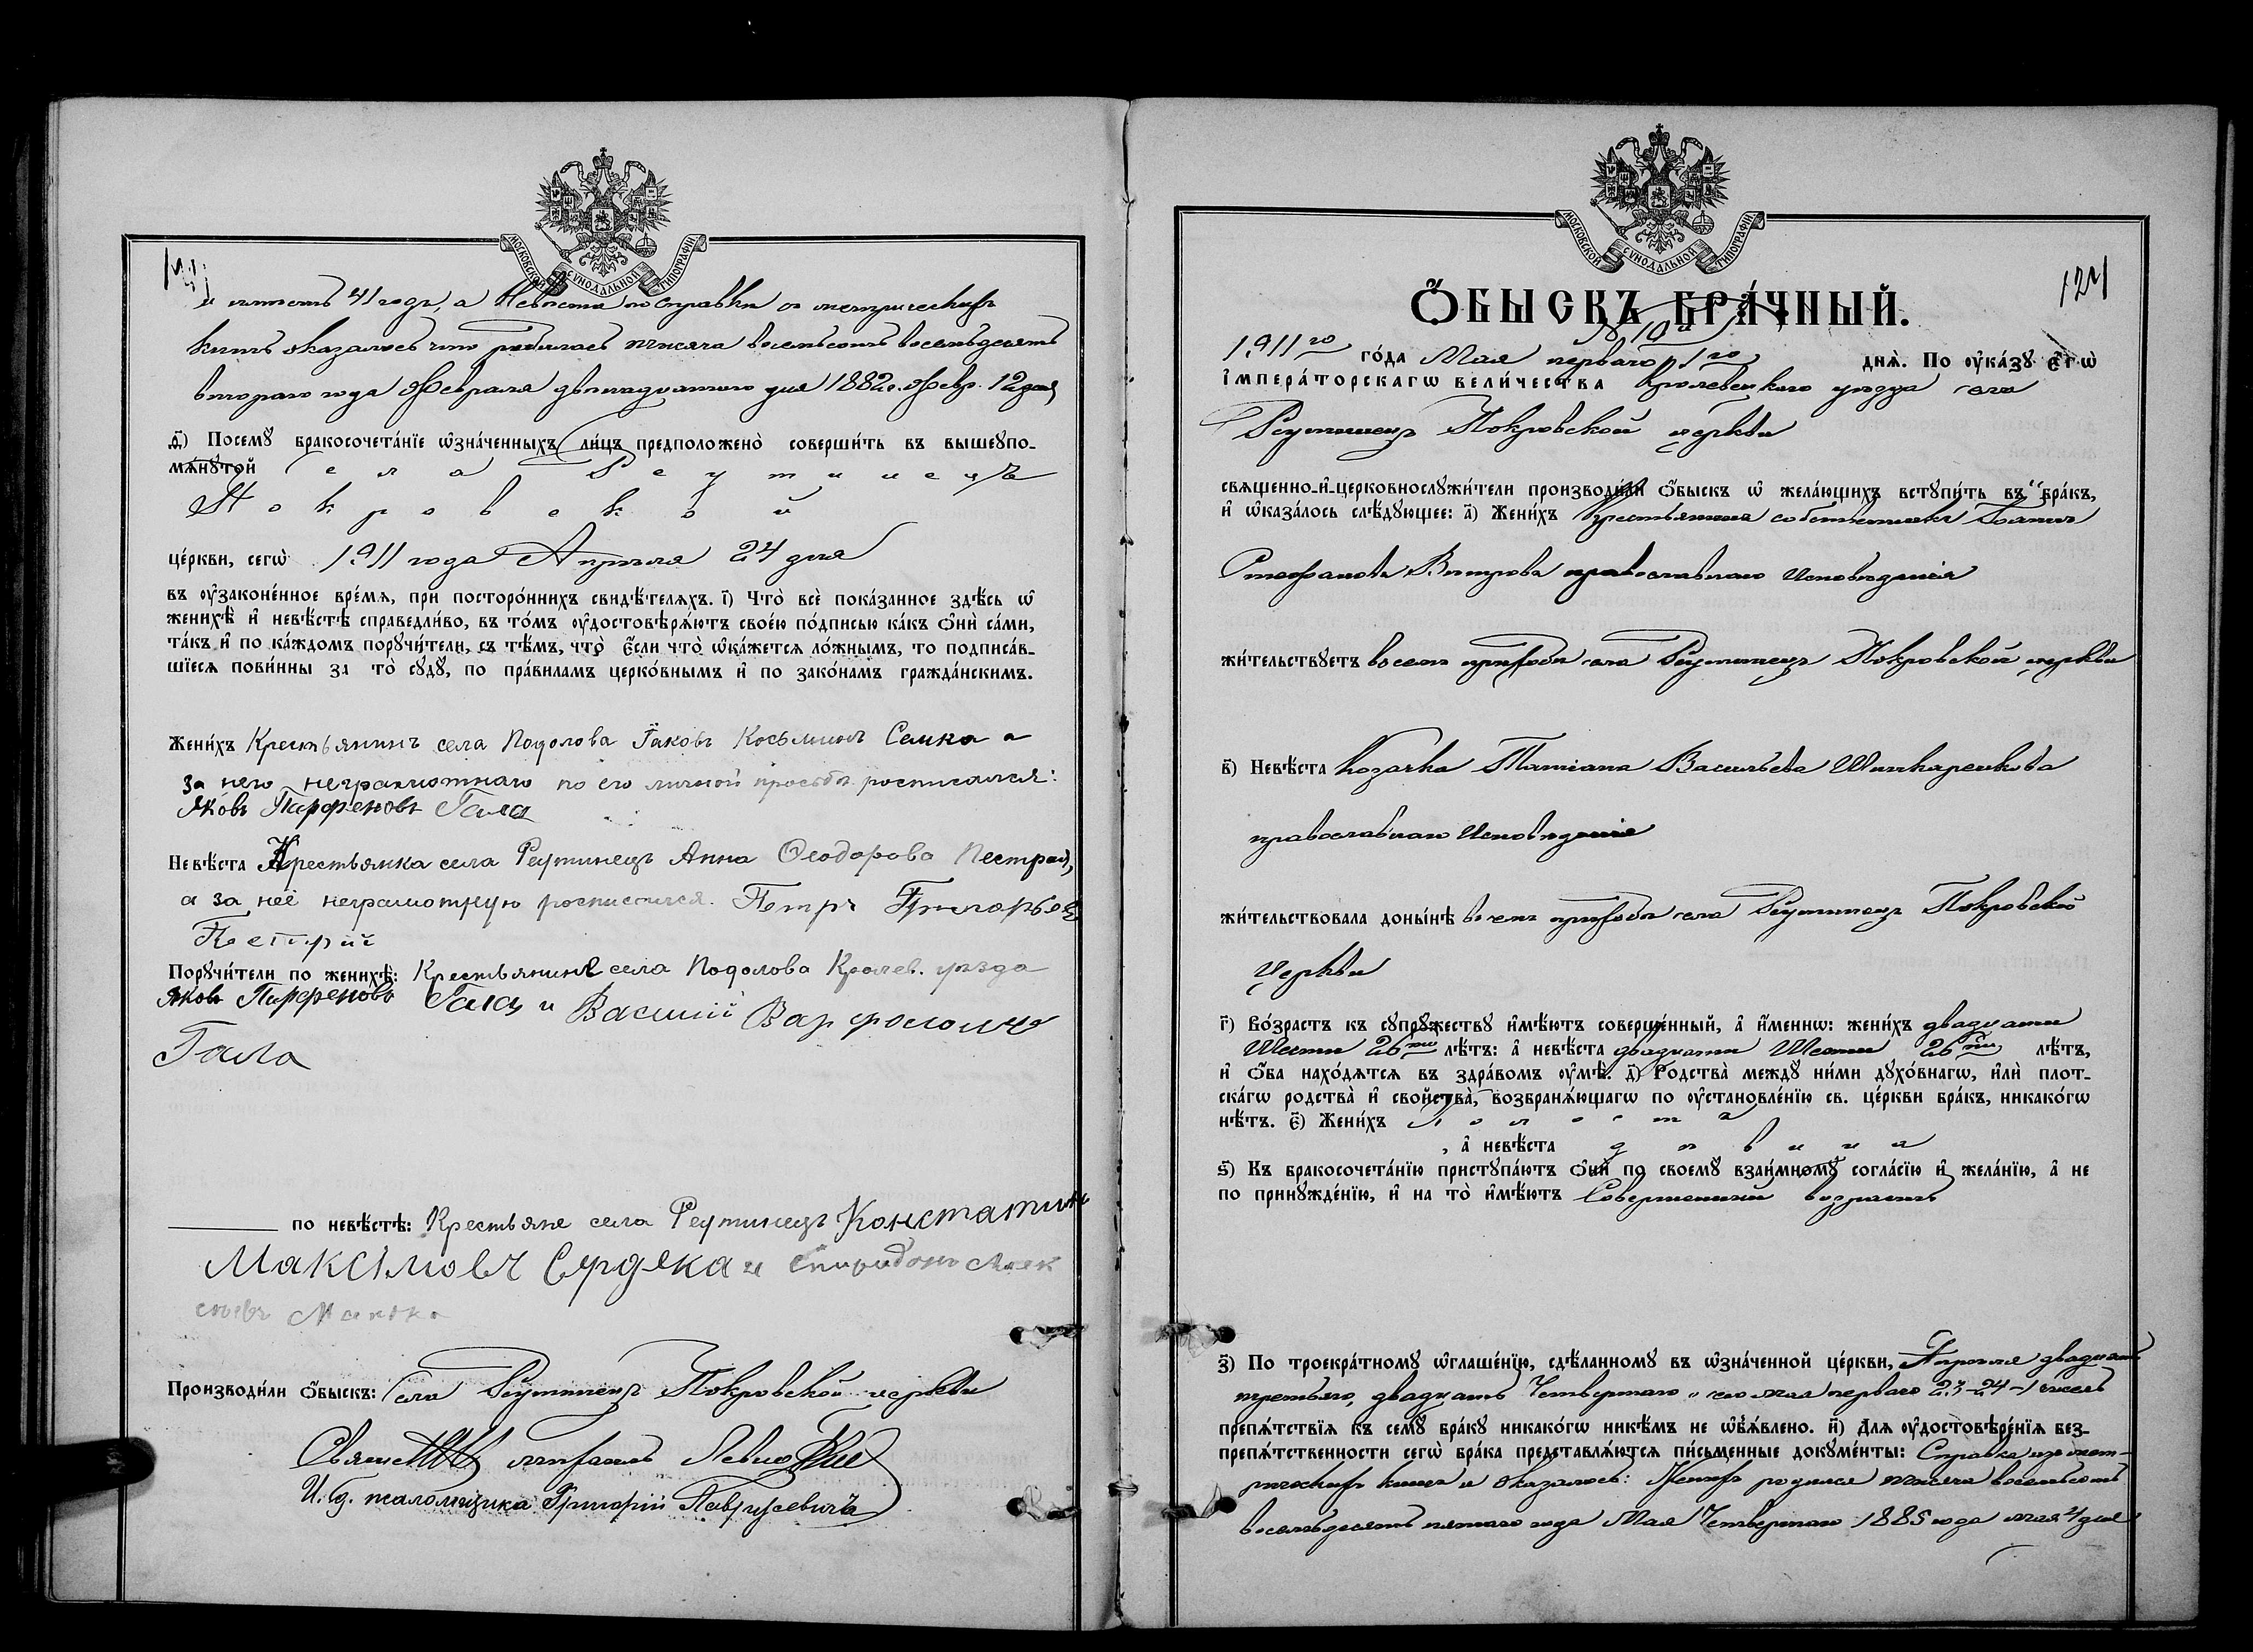 МОСКОВСКОЙ СѴНОДАЛЬНОЙ ТИПОГРАФІИ
имѣетъ 41 годъ, а Невѣста по справки съ метрическихъ
книгъ оказалось что родилась тысяча восемьсотъ восемьдесятъ
второго года Февраля двѣнадцатаго дня 1882 г. Февр. 12 дня
д҃) Посемꙋ̀ бракосочета́нїе ѡ҆зна́ченныхъ ли́цъ предположено̀ соверши́ть въ вышеꙋпо-
мѧ́нꙋтой села Реутинецъ
Покровской
це́ркви, сегѡ̀ 1911 года Апрѣля 24 дня
въ ᲂу҆зако́ненное вре́мѧ, прѝ посторо́ннихъ свидѣ́телѧхъ. і҃) Что̀ всѐ пока́занное здѣ́сь ѡ҆
женихѣ̀ и҆ невѣ́стѣ справедли́во, въ то́мъ ᲂу҆достовѣрѧ́ютъ свое́ю по́дписью ка́къ ѻ҆нѝ са́ми,
та́къ и҆ по ка́ждомъ порꙋчи́тели, съ тѣ́мъ, что̀ є҆́сли что̀ ѡ҆ка́жетсѧ ло́жнымъ, то подписа́в-
шїесѧ пови́нны за то̀ сꙋдꙋ̀, по пра́виламъ церко́внымъ и҆ по зако́намъ гражда́нскимъ.
Жени́хъ Крестьянинъ села Подолова Іаковъ Косьминъ Семка а
за него неграмотнаго по его личной просьбѣ росписался:
Яковъ Парфеновъ Гала
Невѣ́ста Крестьянка села Реутинецъ Анна Ѳеодорова Пестрая,
а за неё неграмотную росписался. Петръ Григорьев
Пестрий
Порꙋчи́тели по женихѣ̀: Крестьяне села Подолова Кролев. уѣзда
Яковъ Парфеновъ Гала и Василий Варфоломе
Гала
по невѣ́стѣ: Крестьяне села Реутинецъ Констатин
Максімовъ Сердека и Спиридонъ Алек
сѣевъ
Производи́ли ѻ҆́быскъ: Села Реутинецъ Покровской церкви
Священникъ Михаилъ
И. д. псаломщика Григорій
124
Ѻ҆́БЫСКЪ БРА́ЧНЫЙ.
№ 10й
1911го го́да Мая перваго 1го днѧ̀. По ᲂу҆ка́зꙋ Є҆гѡ̀
І҆мпера́торскагѡ вели́чества Кролевецкаго уѣзда села
Реутинецъ Покровской церкви
свѧщенно-и҆-церковнослꙋжи́тели производи́ли ѻ҆́быскъ ѡ҆ жела́ющихъ встꙋпи́ть въ бра́къ,
и҆ ѡ҆каза́лось слѣ́дꙋющее: а҃) Жени́хъ Крестьянинъ собственникъ Іоаннъ
Стефановъ Вѣтровъ православнаго исповѣданія
жи́тельствꙋетъ во семъ приходѣ села Реутинецъ Покровской церкви
в҃) Невѣ́ста козачка Татіана Васильева Шинкаренкова
православнаго исповѣданія
жи́тельствовала доны́нѣ во семъ приходѣ села Реутинецъ Покровской
церкви
г҃) Во́зрастъ къ сꙋпрꙋ́жествꙋ и҆мѣ́ютъ соверше́нный, а҆ и҆́меннѡ: жени́хъ двадцати
Шести 26ти лѣ́тъ: а҆ невѣ́ста двадцати Шести 26ти лѣ́тъ,
и҆ ѻ҆́ба нахо́дѧтсѧ въ здра́вомъ ᲂу҆мѣ̀. д҃) Ро́дства̀ междꙋ ни́ми дꙋхо́внагѡ, и҆лѝ плот-
ска́гѡ родства̀ и҆ сво́йства̀, возбранѧ́ющагѡ по ᲂу҆становле́нїю св. це́ркви бра́къ, никако́гѡ
нѣ́тъ. є҃) Жени́хъ холостъ
, а҆ невѣ́ста дѣвица
ѕ҃) Къ бракосочета́нїю пристꙋпа́ютъ ѻ҆нѝ по своемꙋ̀ взаи́мномꙋ согла́сїю и҆ жела́нїю, а҆ не
по принꙋжде́нїю, и҆ на то̀ и҆мѣ́ютъ Совершенный возрастъ
з҃) По троекра́тномꙋ ѡ҆глаше́нїю, сдѣ́ланномꙋ въ ѡ҆зна́ченной це́ркви, Апрѣля двадцать
третьяго, двадцать Четвертаго и сего мая перваго 23-24-1 чиселъ
препѧ́тствїѧ къ семꙋ̀ бра́кꙋ никако́гѡ никѣ́мъ не ѡ҆б̾ѧ́влено. и҃) Длѧ ᲂу҆достовѣре́нїѧ без-
препѧ́тственности сегѡ̀ бра́ка представлѧ́ютсѧ пи́сьменные докꙋме́нты: Справка изъ мет-
рическихъ книгъ и оказалось: Женихъ родился тысяча восемьсотъ
восемьдесятъ пятаго года Мая Четвертаго 1885 года мая 4 дня
МОСКОВСКОЙ СѴНОДАЛЬНОЙ ТИПОГРАФІИ